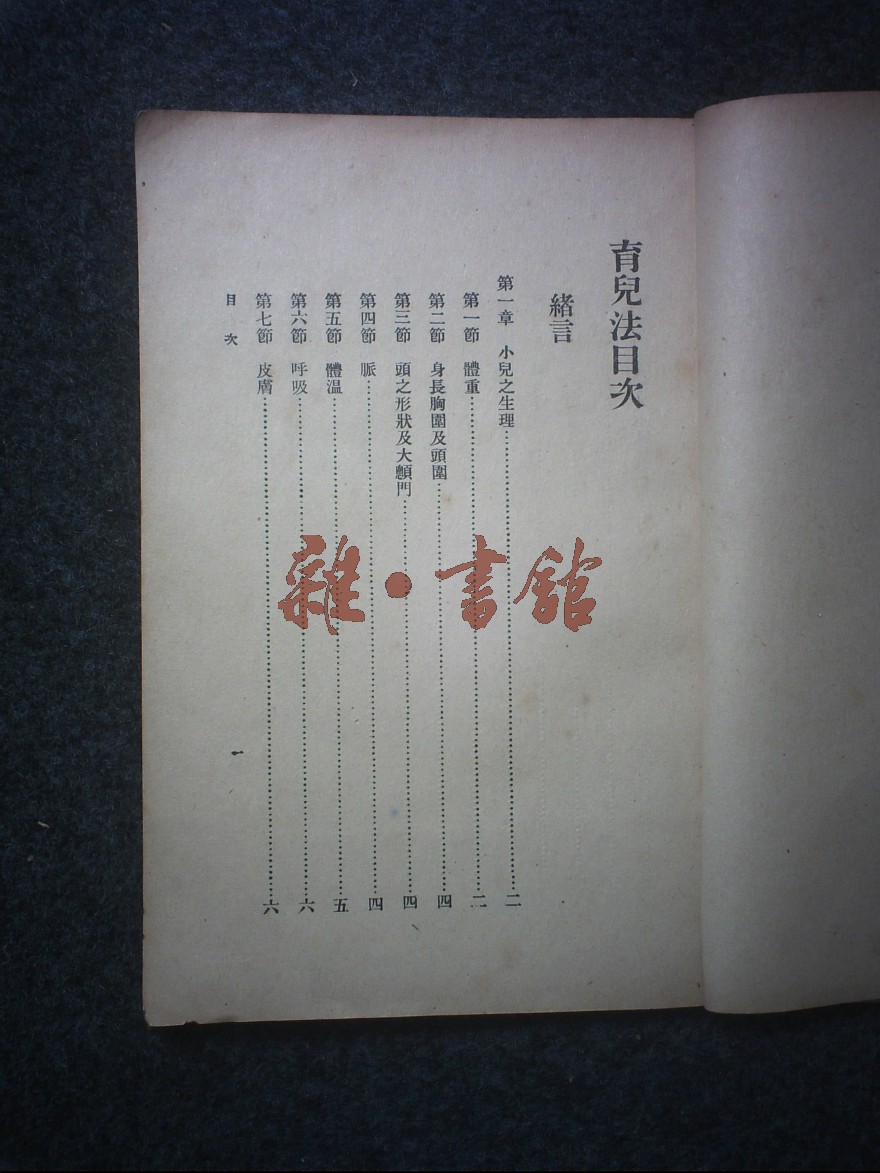 育兒法目次
緒言
第一章 小兒之生理……二
第一節 體重……二
第二節 身長胸圍及頭圍……四
第三節 頭之形狀及大顖門……四
第四節 脈……四
第五節 體溫……五
第六節 呼吸……六
第七節 皮膚……六
目次 一
雜·書館